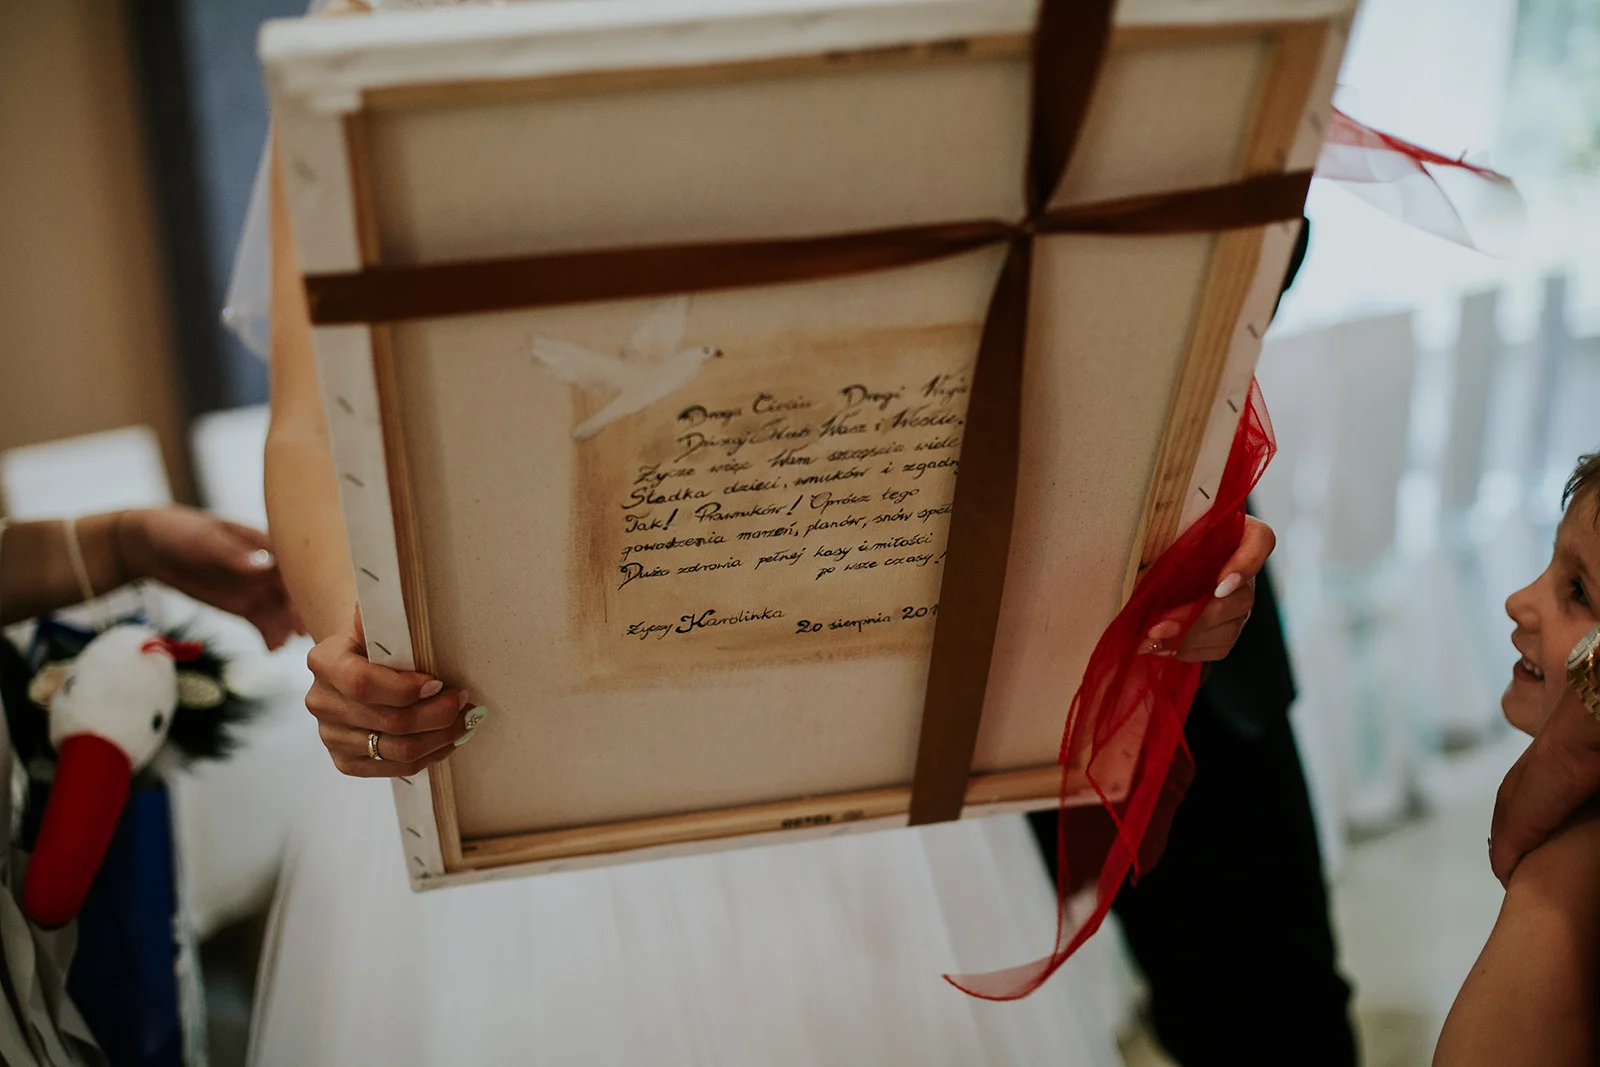 Droga Ciociu Drogi
Dzisiaj ślub Wasz i Wesele,
Życzę więc Wam szczęścia wiele
Stadka dzieci, wnuków i zgadn
Tak! Prawnuków! Oprócz tego
powodzenia marzeń, planów, snów speł
Dużo zdrowia pełnej kasy i miłości
po wsze czasy!
życzy Karolinka 20 sierpnia 201